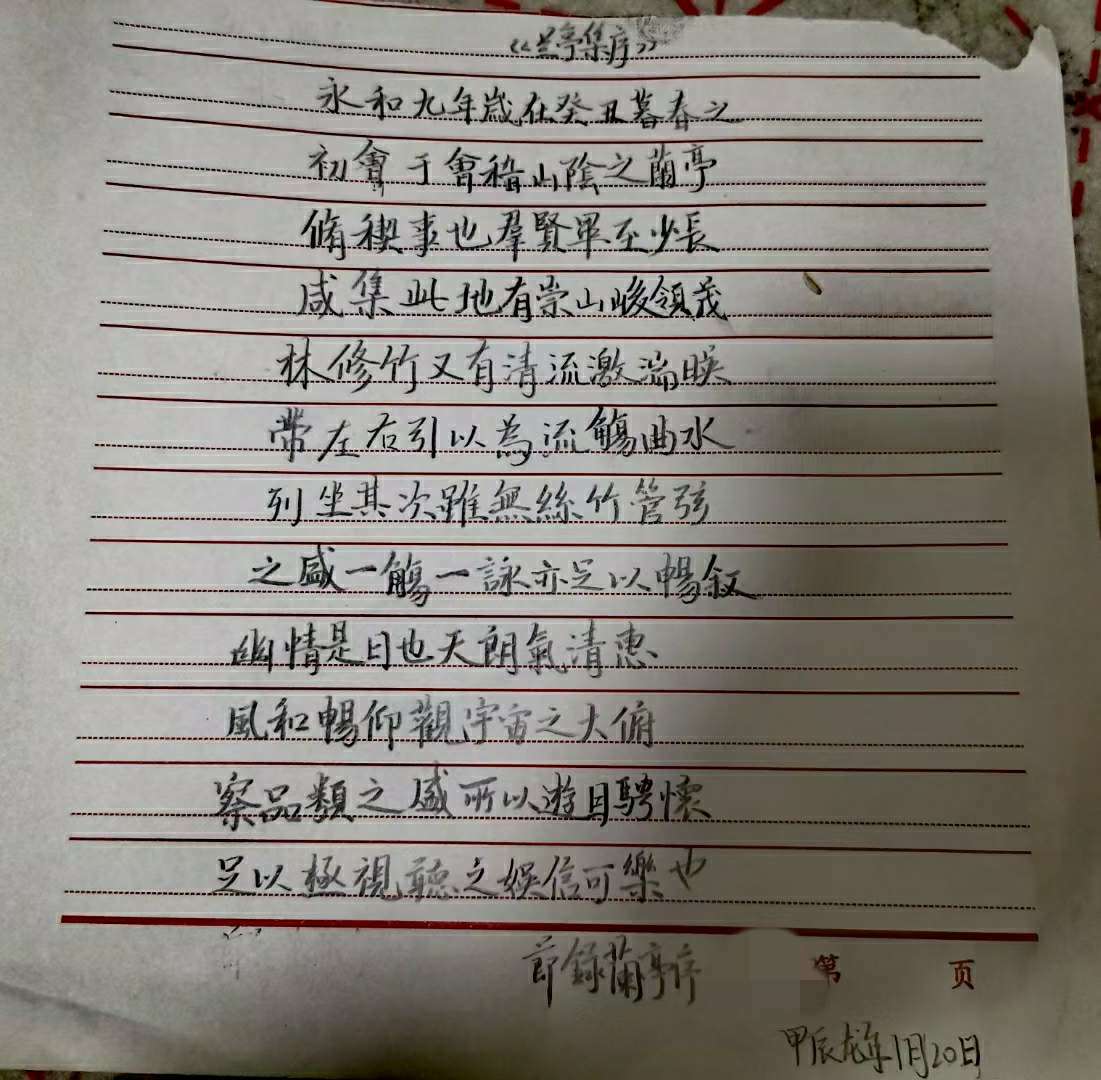 《兰亭集序》
永和九年歲在癸丑暮春之
初會于會稽山陰之蘭亭
脩稧事也羣賢畢至少長
咸集此地有崇山峻領茂
林修竹又有清流激湍暎
帶左右引以為流觴曲水
列坐其次雖無絲竹管弦
之盛一觴一詠亦足以暢叙
幽情是日也天朗氣清惠
風和暢仰觀宇宙之大俯
察品類之盛所以遊目騁懷
足以極視聽之娛信可樂也
節錄蘭亭序
第 页
甲辰龙年1月20日